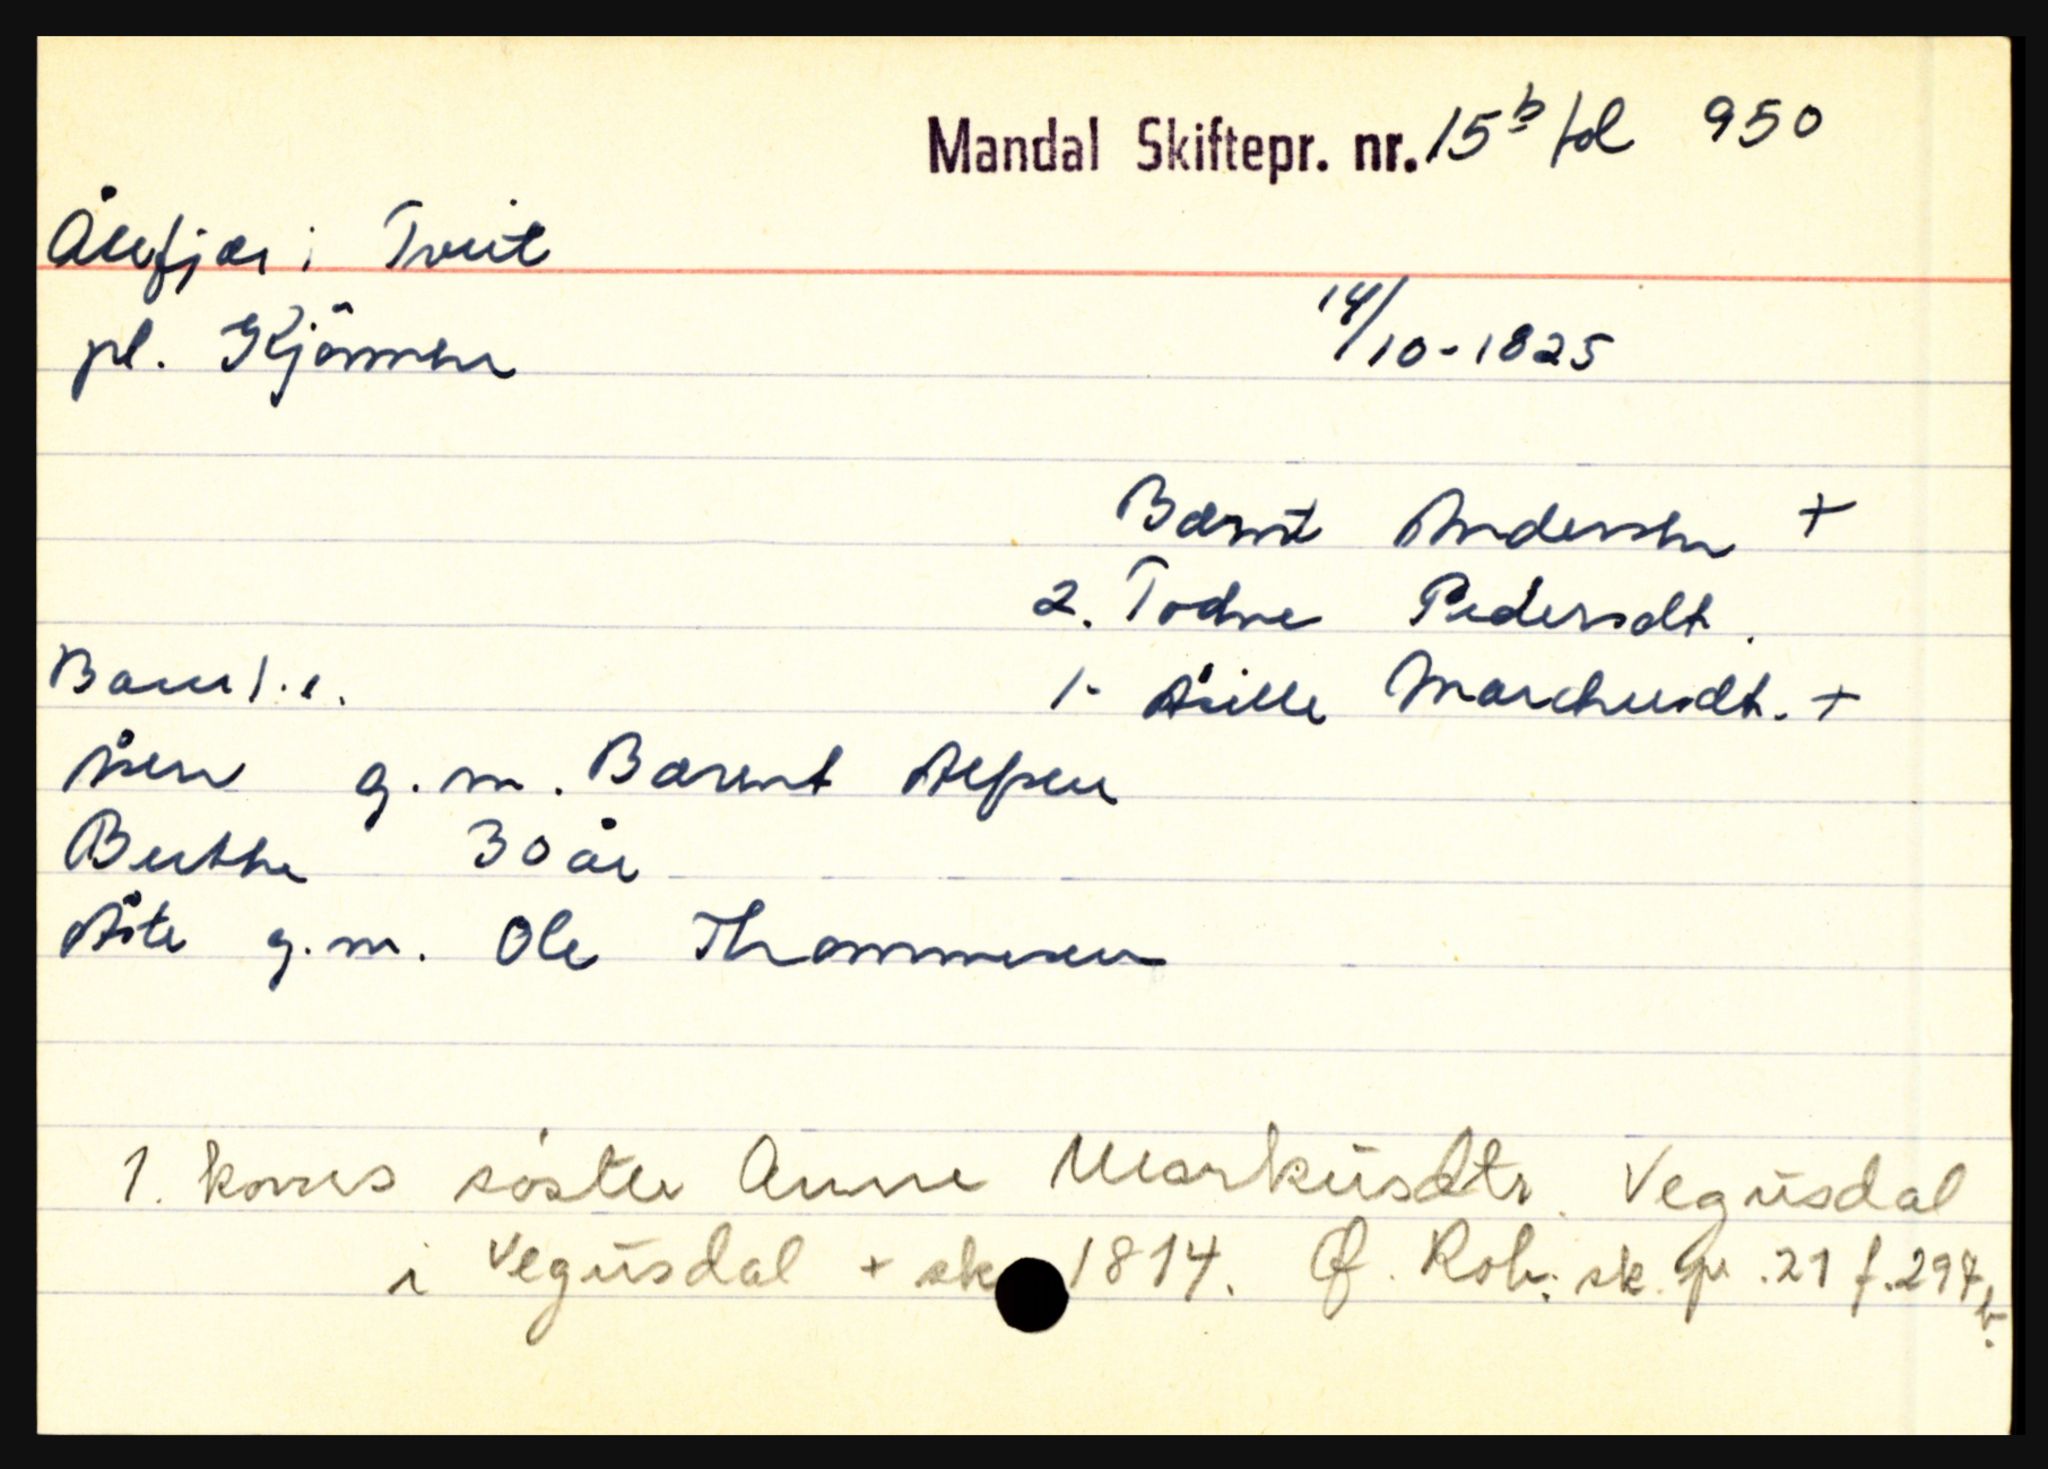 Mandal Skiftepr. nr. 15b fol 950
Ålefjær i Tveit
pl. Kjönmen
14/10-1825
Bærnt Andersen +
2. Todne Pedersdt.
1. Åsille Marchusdt. +
Barn 1.e.
Åsen g.m. Barent Alfsen
Berthe 30 år
Åste g.m. Ole Thommesen
1. kones söster Anne Markusdtr. Vegusdal
i Vegusdal + sk 1814. Rob. sk. pr. 21 f. 297b.